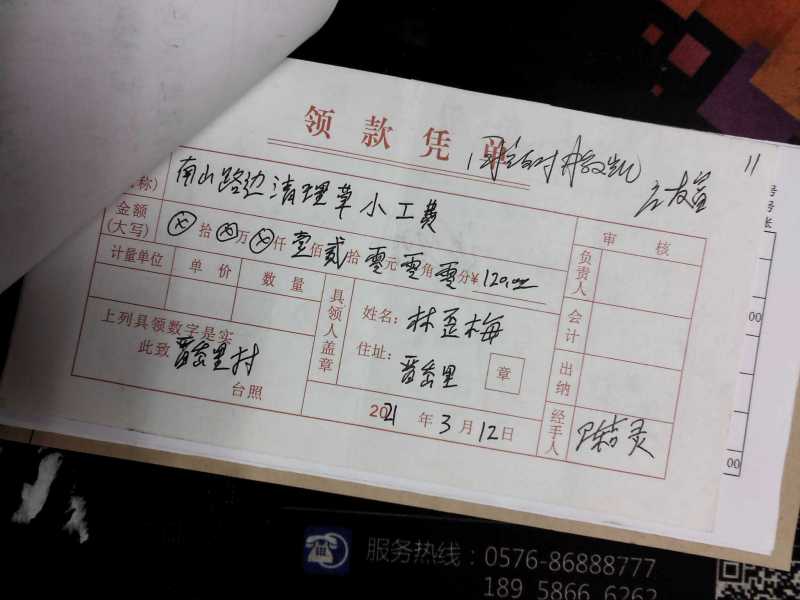 领款凭单
11
称)
南山路边清理草小工费
金额
(大写)
⊗拾⊗万⊗仟壹佰贰拾零元零角零分¥120.00
计量单位 单价 数量
上列具领数字是实
此致
台照
具领人盖章
姓名：林歪梅
住址：
章
2021年3月12日
审核
负责人
会计
出纳
经手人
00
00
服务热线：0576-86888777
189 5866 6262